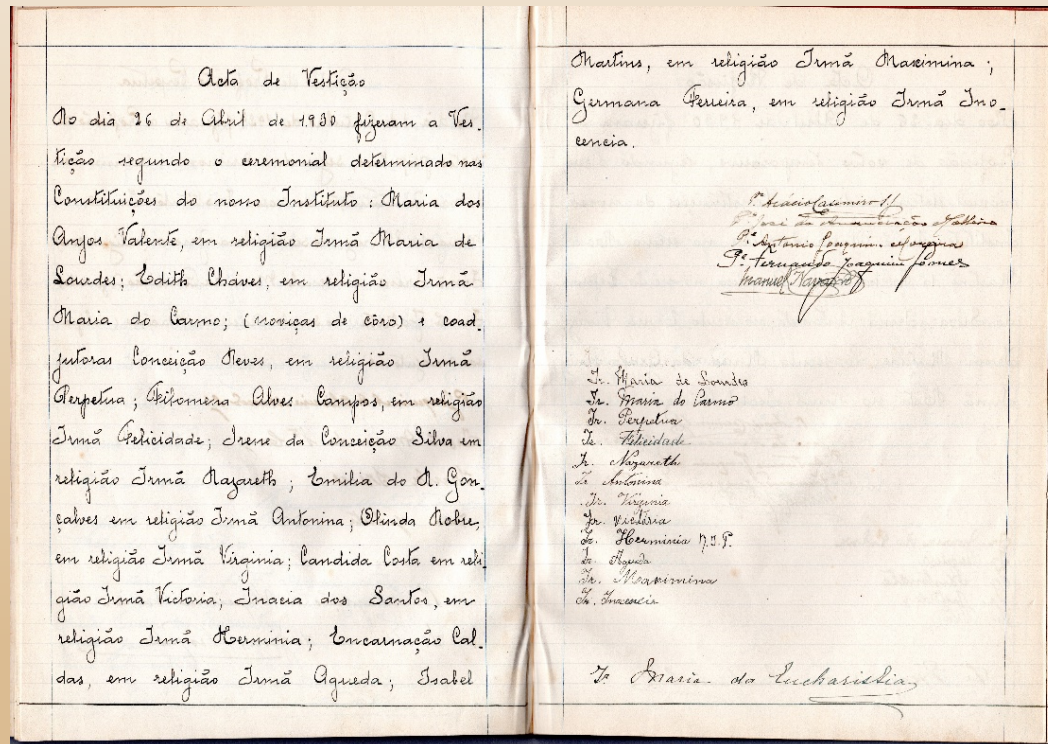 Acta de Vestição
No dia 26 de Abril de 1930 fizeram a Ves-
tição segundo o ceremonial determinado nas
Constituições do nosso Instituto: Maria dos
Anjos Valente, em religião Irmã Maria de
Lourdes; Edith Cháves, em religião Irmã
Maria do Carmo; (noviças de côro) e coad-
jutoras Conceição Neves, em religião Irmã
Perpetua; Filomena Alves Campos, em religião
Irmã Felicidade; Irene da Conceição Silva em
religião Irmã Nazareth; Emilia do N. Gon-
çalves em religião Irmã Antonina; Olinda Nobre,
em religião Irmã Virginia; Candida Costa em reli-
gião Irmã Victoria; Inacia dos Santos, em
religião Irmã Herminia; Encarnação Cal-
das, em religião Irmã Agueda; Isabel
Martins, em religião Irmã Maximina;
Germana Ferreira, em religião Irmã Ino-
cencia.
P. Acácio Casimiro S.J.
P.e José da Annunciação
P.e António Joaquim Moreira
P.e Fernando Joaquim Gomes
Manuel
Ir. Maria de Lourdes
Ir. Maria do Carmo
Ir. Perpetua
Ir. Felicidade
Ir. Nazareth
Ir Antonina
Ir. Virginia
Ir. Victória
Ir. Herminia N.S.P.
Ir. Agueda
Ir. Maximina
Ir. Inocencia
Ir Maria da Eucharistia